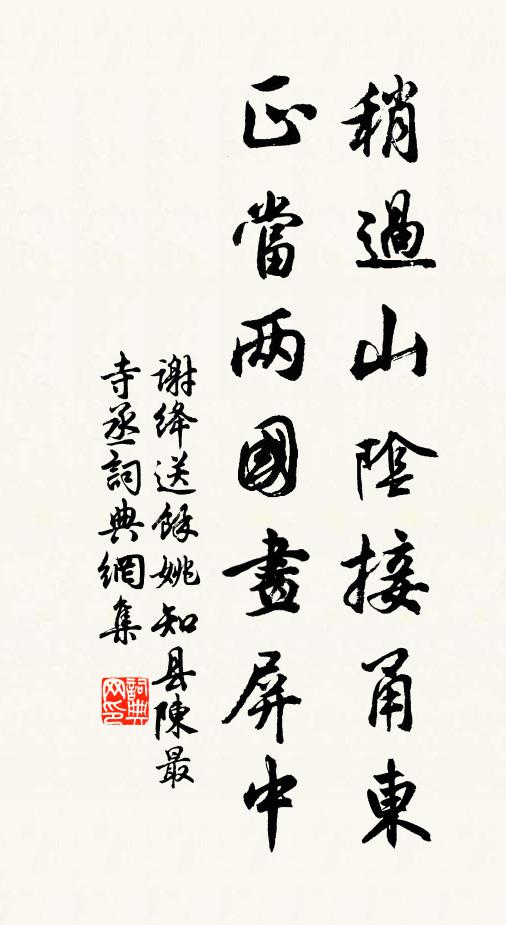 稍過山陰接甬東
正當两國畫屏中
謝绛送餘姚知县陳最
寺丞詞典網集
詞典
网印